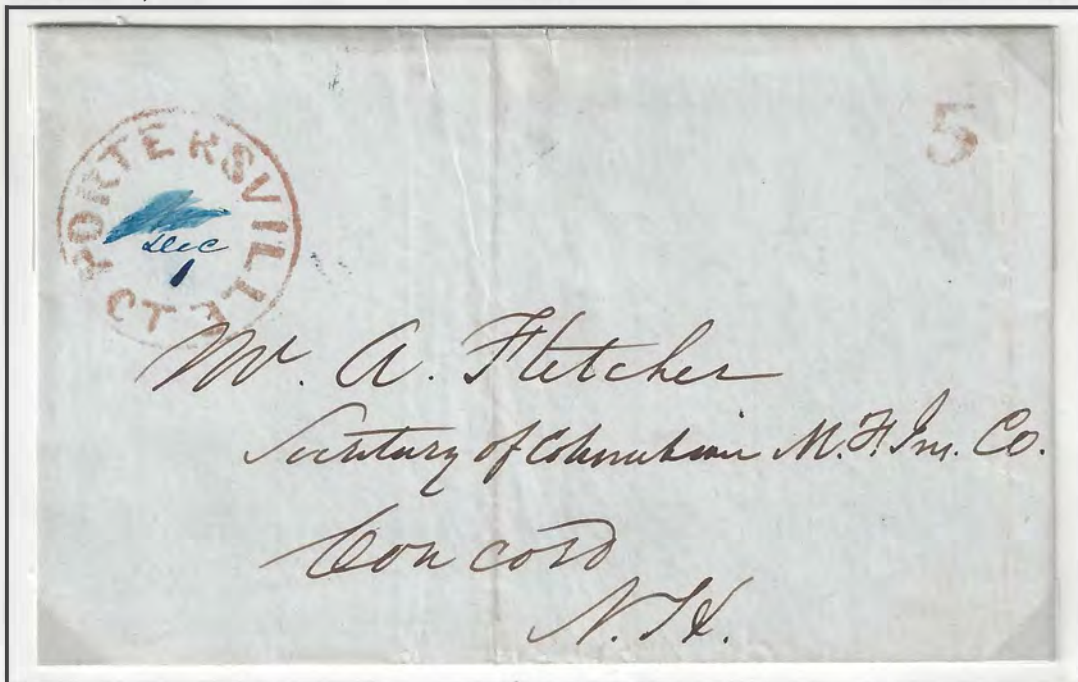 PORTERSVILLE
CT.
Dec
1
5
Mr. A. Fletcher
Secretary of Columbian M. F. Ins. Co.
Concord
N. H.